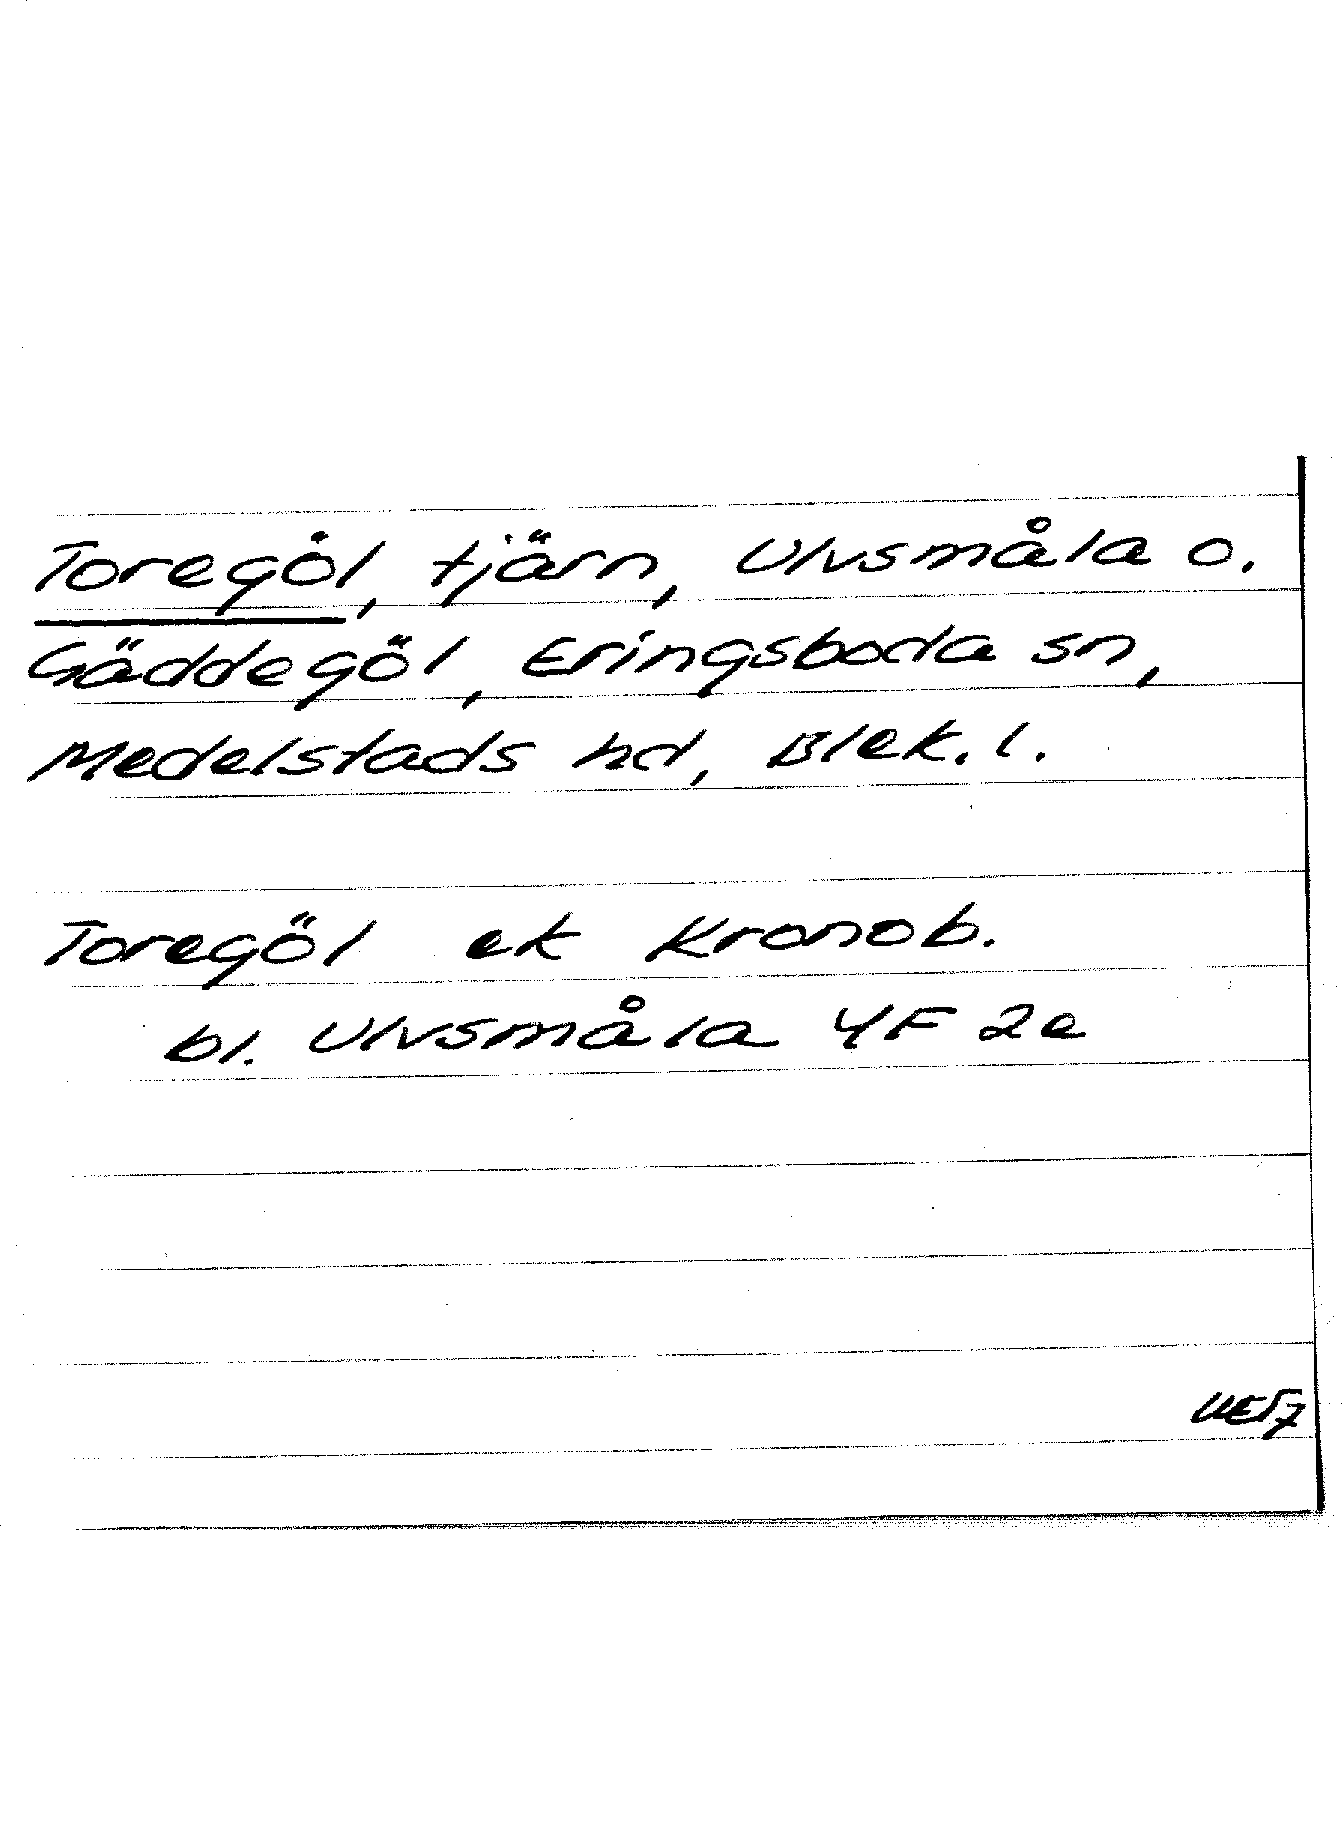 Toregöl, tjärn, Ulvsmåla o.
Gäddegöl, Eringsboda sn,
Medelstads hd, Blek. l.
Toregöl ek Kronob.
bl. Ulvsmåla 4F 2e